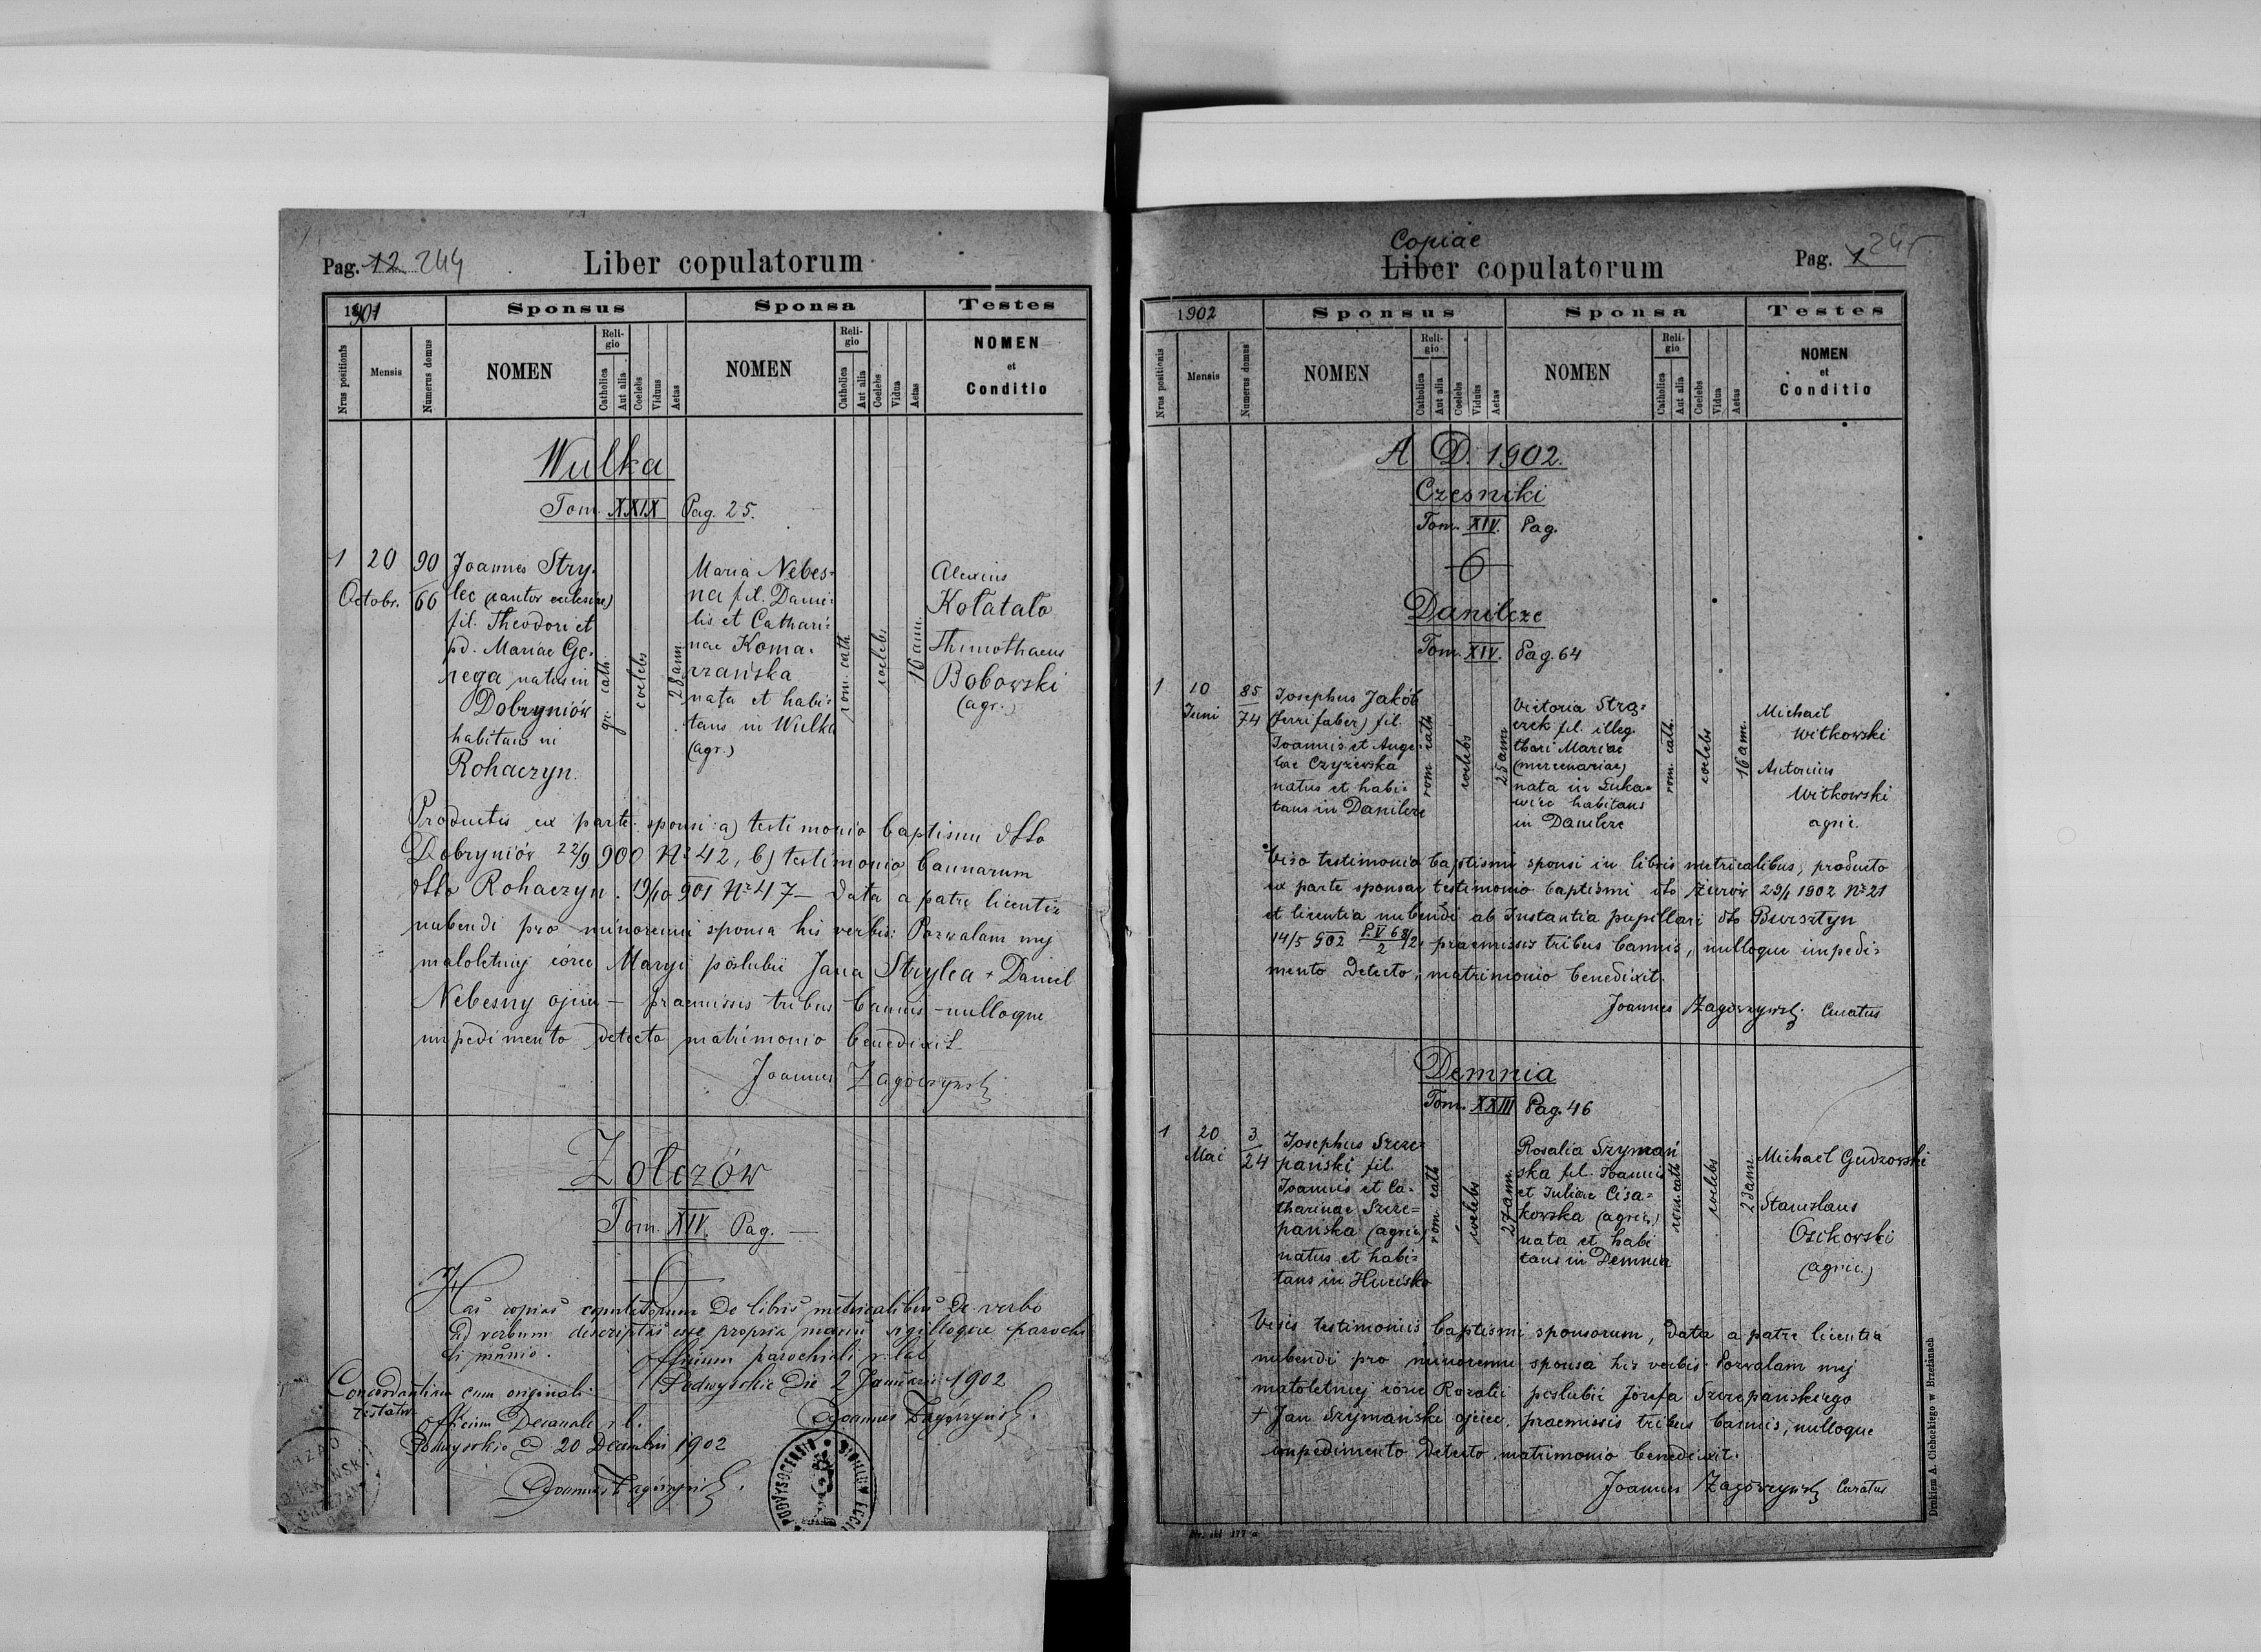 Pag. 12 244
Liber copulatorum
1901
Sponsus
Sponsa
Testes
Nrus positionis
Mensis
Numerus domus
NOMEN
Reli-
gio
Catholica
Aut alia
Coelebs
Viduus
Aetas
NOMEN
Reli-
gio
Catholica
Aut alia
Coelebs
Vidua
Aetas
NOMEN
et
Conditio
Wulka
Tom. XXIX Pag. 25.
1 20 90
Octobr. 60
Joannes Stry-
lec (cantor ecclesiae)
fil. Theodori et
pd. Mariae Ge-
rega natus in
Dobryniów
habitans in
Rohaczyn.
gr. cath.
coelebs
28 ann.
Maria Nebes-
na fil. Danie-
lis et Cathari-
nae Koma-
rzańska
nata et habi-
tans in Wulka
(agr.)
rom. cath.
coelebs
16 ann.
Alexius
Kołatało
Thimothaeus
Bobowski
(agr.)
Productis ex parte sponsi: a) testimonio baptismi dtto
Dobryniów 22/9 900 Nr 42, b) testimonio bannorum
dtto Rohaczyn. 19/10 901 Nr 47 – data a patre licentia
nubendi pro minorenni sponsa his verbis: Pozwalam mej
małoletniej córce Maryi poślubić Jana Strylca + Daniel
Nebesny ojciec – praemissis tribus bannis – nulloque
impedimento detecto matrimonio benedixit
Joannes Zagórzyński
Zolczów
Tom. XIV. Pag. —
Has copias copulatorum de libris metricalibus de verbo
ad verbum descriptas esse propria manu sigilloque parochi-
li munio.
Officium parochiali r. lat.
Podwysokie die 2 Januarii 1902
Joannes Zagórzyński.
Concordantiam cum originali
testatur
Officium Decanale r. l.
Podwysokie d 20 Decembris 1902
Joannes Zagórzyński.
Copiae
Liber copulatorum
Pag. 1 245
1902
Sponsus
Sponsa
Testes
Nrus positionis
Mensis
Numerus domus
NOMEN
Reli-
gio
Catholica
Aut alia
Coelebs
Viduus
Aetas
NOMEN
Reli-
gio
Catholica
Aut alia
Coelebs
Vidua
Aetas
NOMEN
et
Conditio
A D. 1902.
Czesniki
Tom. XIV. Pag.
Danilcze
Tom. XIV. Pag. 64
1 10 85
Juni 74
Josephus Jakób
(ferrifaber) fil.
Joannis et Ange-
lae Czyżewska
natus et habi-
tans in Danilcze
rom. cath
coelebs
25 ann.
Victoria Strą-
czek fil. illeg.
thori Mariae
(mercenariae)
nata in Łuka-
wiec habitans
in Danilcze
rom. cath.
coelebs
16 ann.
Michael
Witkowski
Antonius
Witkowski
agric.
Viso testimonio baptismi sponsi in libris metricalibus, producto
ex parte sponsae testimonio baptismi dto Żurów 29/1 1902 Nr 21
et licentia nubendi ab Instantia pupillari dto Bursztyn
14/5 902 P.V 68/2 2, praemissis tribus bannis, nulloque impedi-
mento detecto, matrimonio benedixit.
Joannes Zagórzyński Curatus
Demnia
Tom. XXIII Pag. 46
1 20 3
Mai 24
Josephus Szcze-
pański fil.
Joannis et Ca-
tharinae Szcze-
pańska (agric.)
natus et habi-
tans in Hucisko
rom. cath
coelebs
27 ann.
Rosalia Szymań
ska fil. Joannis
et Juliae Cisa-
kowska (agric.)
nata et habi
tans in Demnia
rom. cath
coelebs
23 ann.
Michael Gudzowski
Stanislaus
Osikowski
(agric.)
Visis testimoniis baptismi sponsorum, data a patre licentia
nubendi pro minorenni sponsa his verbis: Pozwalam mej
małoletniej córce Rozalii poślubić Józefa Szczepańskiego
+ Jan Szymański ojciec, praemissis tribus bannis, nulloque
impedimento detecto, matrimonio benedixit.
Joannes Zagórzyński Curatus
Drukiem A. Cichockiego w Brzeżanach